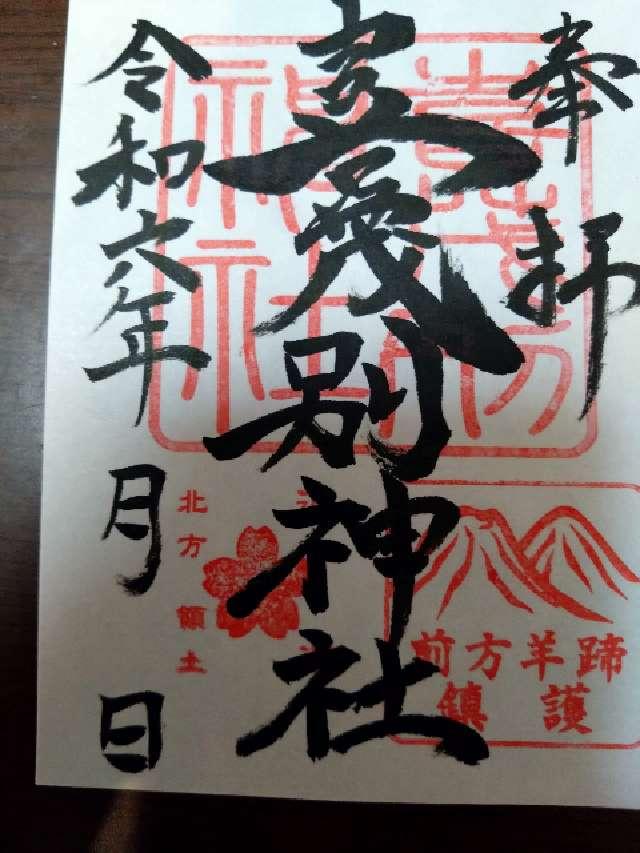 奉拝
喜茂別神社
令和六年 月 日
喜茂別
神社
前方羊蹄
鎮護
北方領土